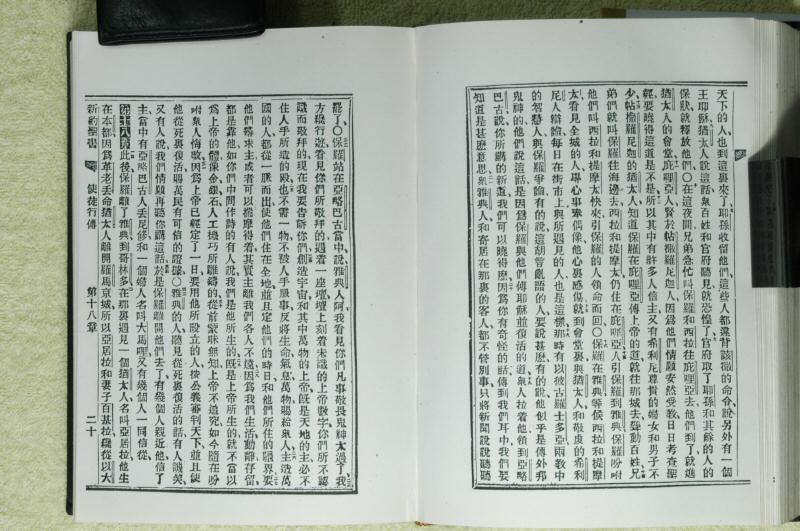 天下的人也到這裏來了耶孫收留他們這些人都違背該撒的命令說另外有一個
王耶穌猶太人說這話衆百姓和官府聽見就恐惶了官府取了耶孫和其餘的人的
保狀就釋放他們○在這夜間兄弟急忙叫保羅和西拉往庇哩亞去他們到了就進
猶太人的會堂庇哩亞人賢於帖撒羅尼迦人因爲他們情願安然受敎日日考查聖
經要曉得這道是不是所以其中有許多人信主又有希利尼尊貴的婦女和男子不
少帖撒羅尼迦的猶太人知道保羅在庇哩亞傳上帝的道就往那城去聳動百姓兄
弟們就叫保羅往海邊去西拉和提摩太仍住在庇哩亞人引保羅到雅典保羅吩咐
他們叫西拉和提摩太快來引保羅的人領命而回○保羅在雅典等候西拉和提摩
太看見全城的人專心事奉偶像他心裏感傷就到會堂裏與猶太人和敬虔的希利
尼人辯論每日在街市上與所遇見的人也是這樣那時有以彼古羅士多亞兩敎中
的智慧人與保羅爭論有的說這胡言亂語的人要說甚麽有的說他似乎是傳外邦
鬼神的他們說這話是因爲保羅與他們傳耶穌並復活的道衆人拉着他領到亞略
巴古說你所講的新道我們可以曉得麽因爲你有些奇怪的話傳到我們耳中我們要
知道是甚麽意思衆雅典人和寄居在那裏的客人都不管別事只將新聞說說聽聽
罷了○保羅站在亞略巴古當中說雅典人阿我看見你們凡事敬畏鬼神太過了我
方纔行遊看見你們所敬拜的遇着一座壇壇上刻着未識的上帝數字你們所不認
識而敬拜的現在我要告訴你們創造宇宙和其中萬物的上帝旣是天地的主必不
住人手所造的殿也不需一物不被人手服事反將生命氣息萬物賜給衆人主造萬
國的人都從一脈而出使他們住在全地並且定他們的時日和他們所住的疆界要
他們尋求主或者可以揣摩得着其實主離我們各人不遠因爲我們生活動靜存留
都是靠他如你們中間作詩的有人說我們是他所生的旣是上帝所生的就不當以
爲上帝的體像金銀石人工機巧所雕鑄的從前蒙昧無知上帝不追究如今隨在吩
咐衆人悔改因爲上帝已經定了一日要用他所設立的人按公義審判天下並且使
他從死裏復活賜萬民有可信的證據○雅典的人聽見從死裏復活的話有人譏笑
又有人說我們情願再聽你講這話於是保羅離開他們去了有幾個人親近他信了
主當中有亞略巴古人丢尼修和一個婦人名叫大馬哩又有幾個人一同信從
第十八章此後保羅離了雅典到哥林多在那裏遇見一個猶太人名叫亞居拉他生
在本都因爲革老丢命猶太人離開羅馬京城所以亞居拉和妻子百基拉纔從以大
新約聖書 使徒行傳 第十八章 二十